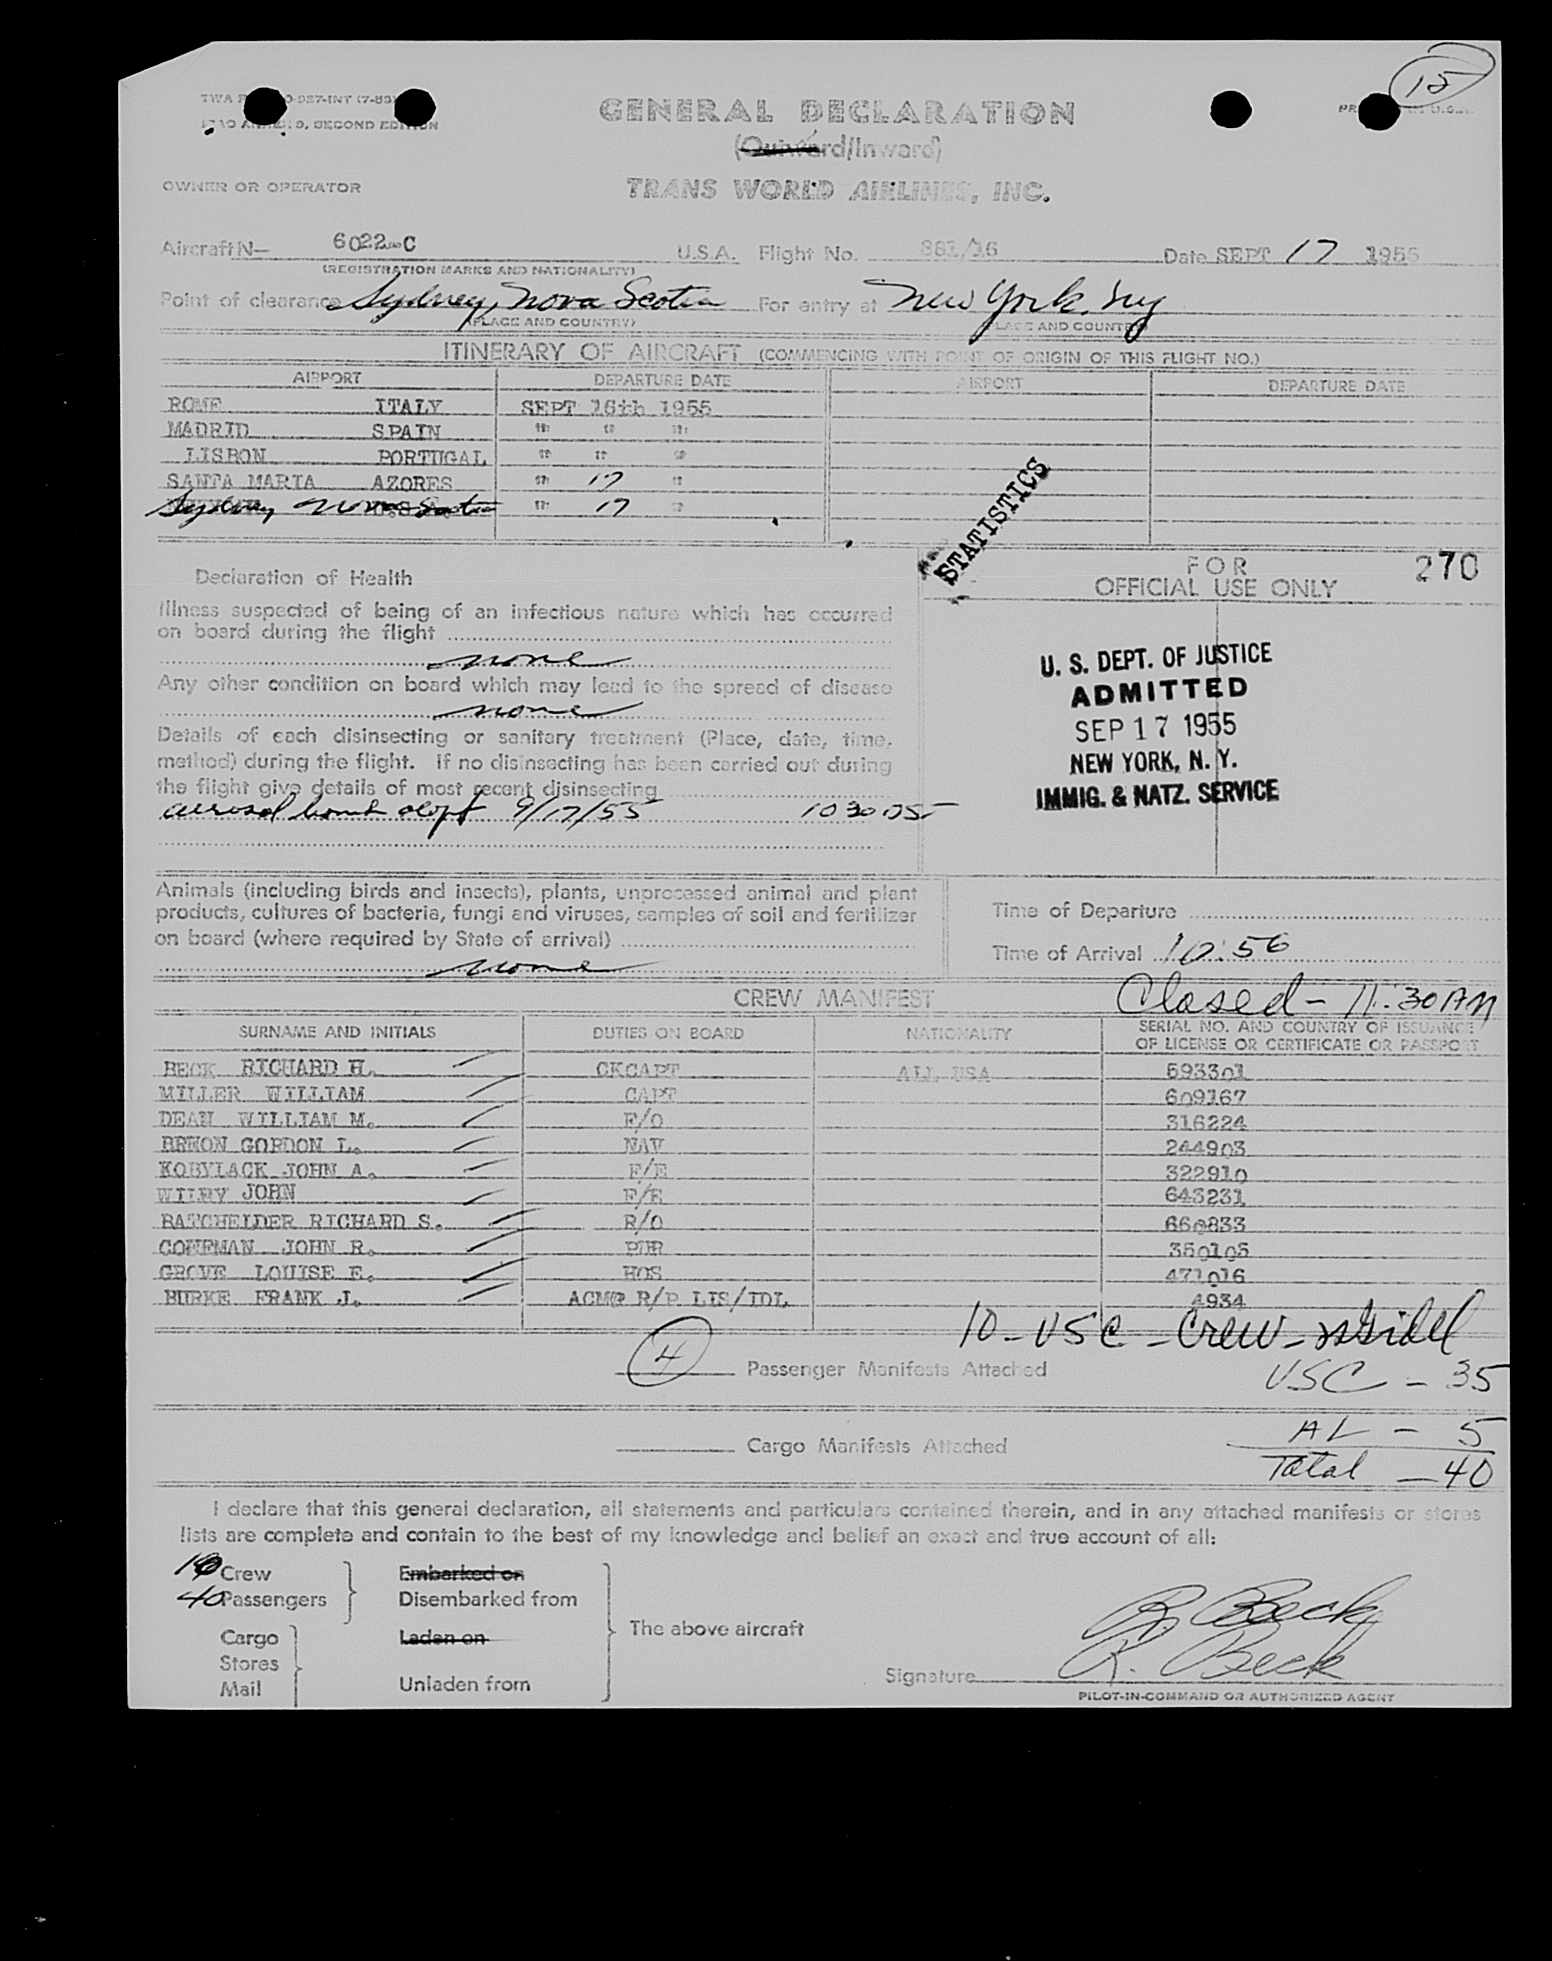 15
GENERAL DECLARATION
(Outward/Inward)
OWNER OR OPERATOR
TRANS WORLD AIRLINES, INC.
Aircraft N— 6022-C U.S.A. Flight No. 881/16 Date SEPT 17 1955
(REGISTRATION MARKS AND NATIONALITY)
Point of clearance Sydney, Nova Scotia For entry at New York, ny
(PLACE AND COUNTRY) (PLACE AND COUNTRY)
ITINERARY OF AIRCRAFT (COMMENCING WITH POINT OF ORIGIN OF THIS FLIGHT NO.)
AIRPORT DEPARTURE DATE AIRPORT DEPARTURE DATE
ROME ITALY SEPT 16th 1955
MADRID SPAIN " " "
LISBON PORTUGAL " " "
SANTA MARIA AZORES " 17 "
Sydney Nova Scotia " 17 "
STATISTICS
FOR
OFFICIAL USE ONLY
270
Declaration of Health
Illness suspected of being of an infectious nature which has occurred
on board during the flight
none
Any other condition on board which may lead to the spread of disease
none
Details of each disinsecting or sanitary treatment (Place, date, time,
method) during the flight. If no disinsecting has been carried out during
the flight give details of most recent disinsecting
aerosol bomb 9/17/55 1030
U. S. DEPT. OF JUSTICE
ADMITTED
SEP 17 1955
NEW YORK, N. Y.
IMMIG. & NATZ. SERVICE
Animals (including birds and insects), plants, unprocessed animal and plant
products, cultures of bacteria, fungi and viruses, samples of soil and fertilizer
on board (where required by State of arrival)
none
Time of Departure
Time of Arrival 10:56
CREW MANIFEST
Closed - 11:30 AM
SURNAME AND INITIALS DUTIES ON BOARD NATIONALITY SERIAL NO. AND COUNTRY OF ISSUANCE
OF LICENSE OR CERTIFICATE OR PASSPORT
BECK RICHARD H. CKCAPT ALL USA 593301
MILLER WILLIAM CAPT 609167
DEAN WILLIAM M. F/O 316224
GORDON L. NAV 244903
KOBYLACK JOHN A. F/E 322910
WILBY JOHN F/E 643231
BATCHELDER RICHARD S. R/O 660833
COFFMAN JOHN R. PUR 350105
GROVE LOUISE E. HOS 471016
BURKE FRANK J. ACM@ R/P LIS/IDL 4934
10 - USC - Crew -
4 Passenger Manifests Attached
USC - 35
Cargo Manifests Attached
AL - 5
Total - 40
I declare that this general declaration, all statements and particulars contained therein, and in any attached manifests or stores
lists are complete and contain to the best of my knowledge and belief an exact and true account of all:
10 Crew
40 Passengers
Cargo
Stores
Mail
Embarked on
Disembarked from
Laden on
Unladen from
The above aircraft
R. Beck
R. Beck
Signature
PILOT-IN-COMMAND OR AUTHORIZED AGENT